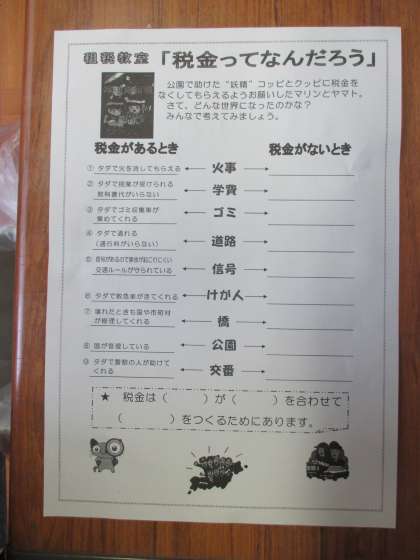 租税教室 「税金ってなんだろう」
公園で助けた"妖精"コッピとクッピに税金を
なくしてもらえるようお願いしたマリンとヤマト。
さて、どんな世界になったのかな？
みんなで考えてみましょう。
税金があるとき 税金がないとき
① タダで火を消してもらえる 火事
② タダで授業が受けられる
教科書代がいらない 学費
③ タダでゴミ収集車が
集めてくれる ゴミ
④ タダで通れる
（通行料がいらない） 道路
⑤ 信号があるので事故が起こりにくい
交通ルールが守られている 信号
⑥ タダで救急車がきてくれる けが人
⑦ 壊れたときも国や市町村
が修理してくれる 橋
⑧ 国が管理している 公園
⑨ タダで警察の人が助けて
くれる 交番
★ 税金は（ ）が（ ）を合わせて
（ ）をつくるためにあります。